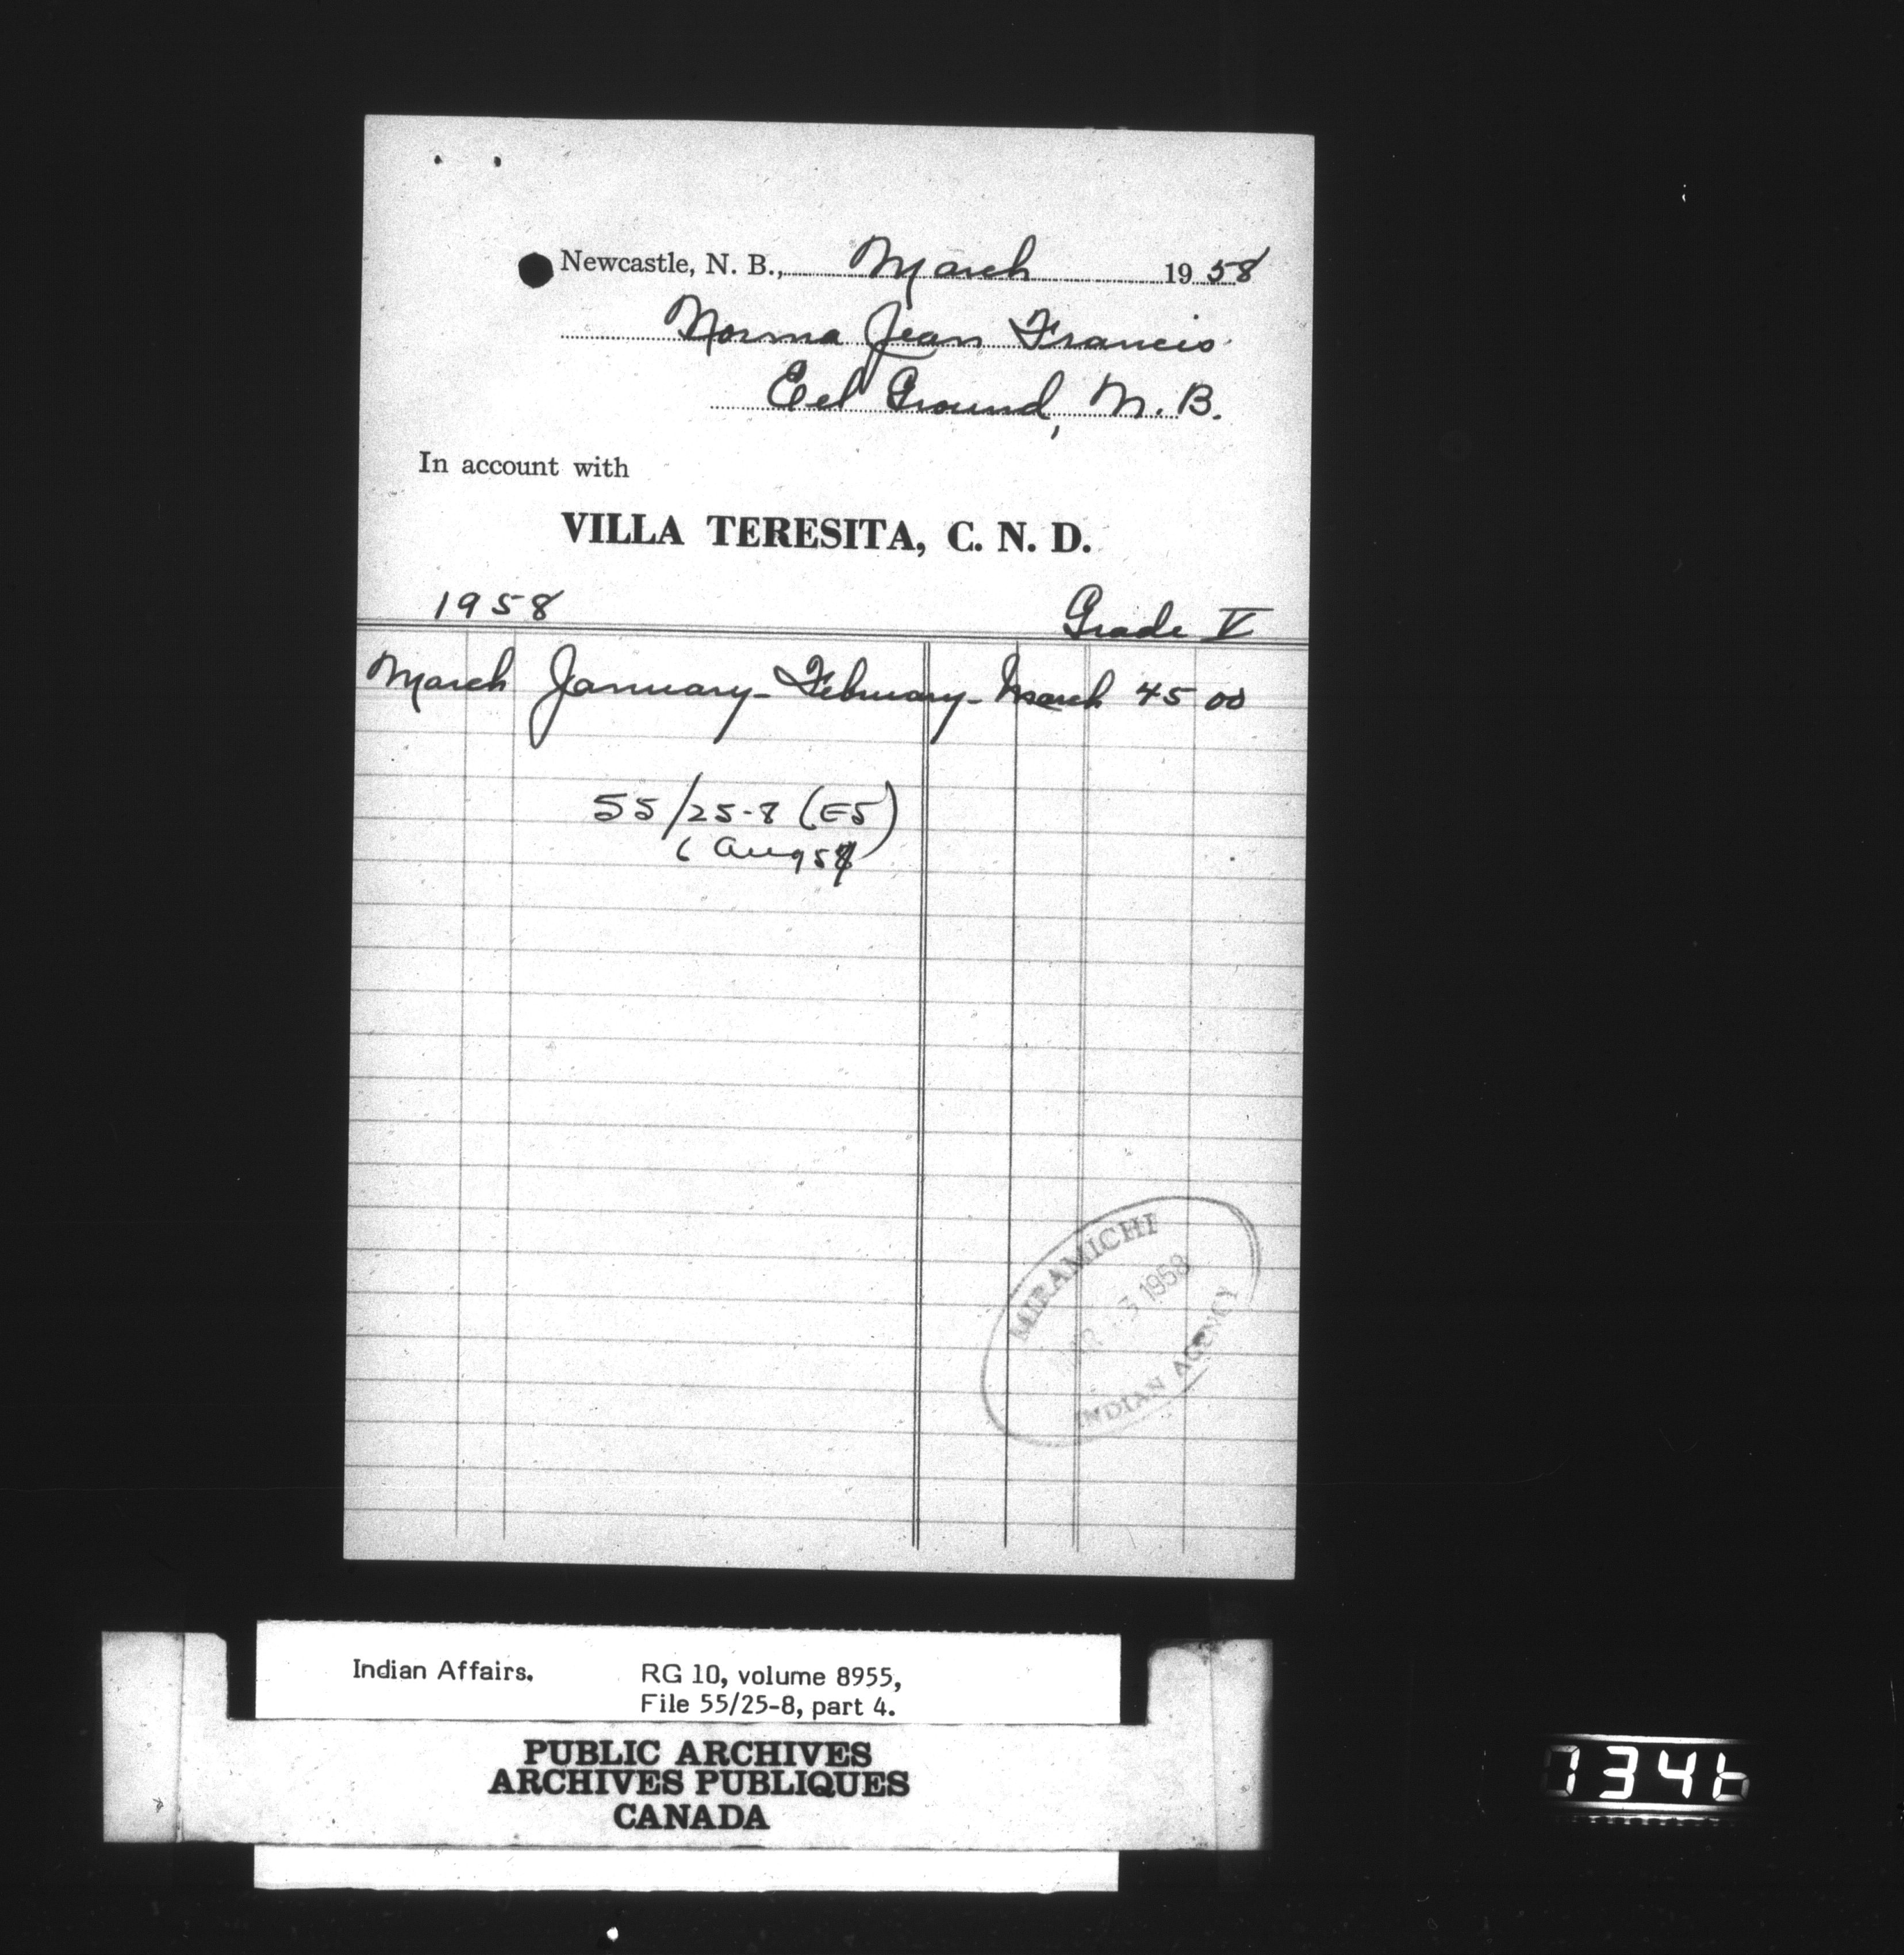 Newcastle, N. B., March 1958
Norma Jean Francis
Eel Ground, N. B.
In account with
VILLA TERESITA, C. N. D.
1958 Grade V
March January - February - March 45 00
55/25-8 (E5)
6 Aug 58
MIRAMICHI
MAR 3 1958
INDIAN AGENCY
Indian Affairs. RG 10, volume 8955,
File 55/25-8, part 4.
PUBLIC ARCHIVES
ARCHIVES PUBLIQUES
CANADA